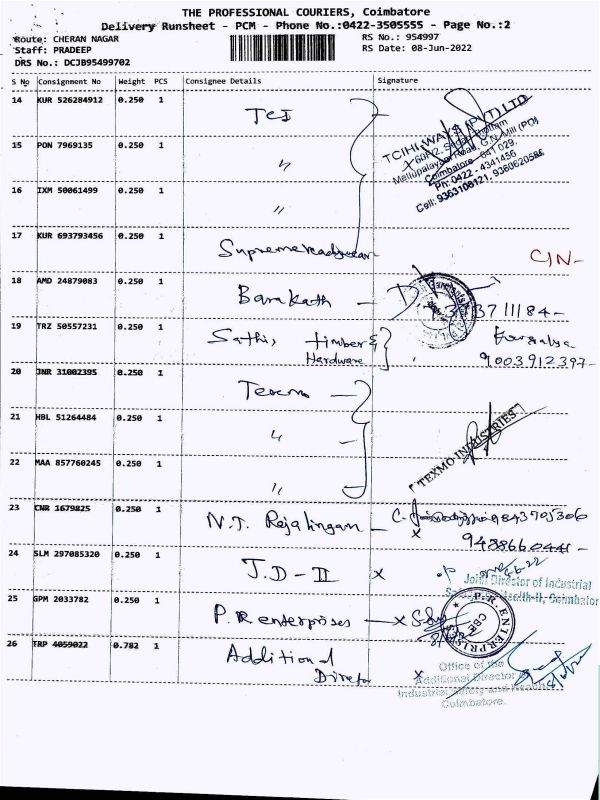 THE PROFESSIONAL COURIERS, Coimbatore
Delivery Runsheet - PCM - Phone No.:0422-3505555 - Page No.:2
Route: CHERAN NAGAR
RS No.: 954997
Staff: PRADEEP
RS Date: 08-Jun-2022
DRS No.: DCJB95499702
S No Consignment No Weight PCS Consignee Details Signature
14 KUR 526284912 0.250 1 TCI
TCIHI WAYS (PVT) LTD
Mettupalayam Road, G.N.Mill (PO)
Coimbatore - 641 029.
Ph: 0422 - 4341456
Cell: 9363108121, 9360620585
15 PON 7969135 0.250 1 "
16 IXM 50061499 0.250 1 "
17 KUR 693793456 0.250 1 Supreme
18 AMD 24879083 0.250 1 Barakath
19 TRZ 50557231 0.250 1 Sathi, timber &
Hardware
9003912397-
20 JNR 31002395 0.250 1 Texmo
21 HBL 51264484 0.250 1 "
TEXMO INDUSTRIES
22 MAA 857760245 0.250 1 "
23 CNR 1679825 0.250 1 N.T. Rajalingam
9843705306
24 SLM 297085320 0.250 1 J.D-II x
Joint Director of Industrial
Health-II, Coimbatore
25 GPM 2033782 0.250 1 P.R enterprises - x
P.R. ENTERPRISES
CBE
26 TRP 4059022 0.782 1 Additional
Director x
Office of the
Additional Director
Industrial Safety and Health
Coimbatore.